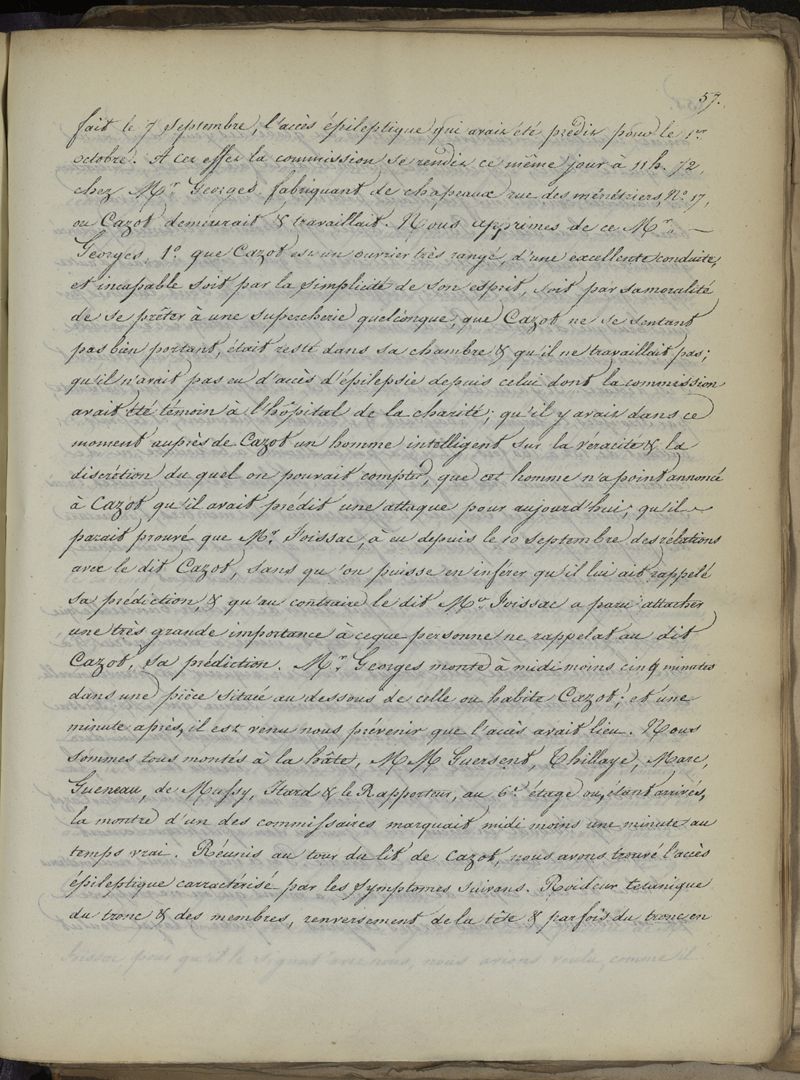 57.
fait le 7 septembre, l'accès épileptique qui avait été prédit pour le 1er
octobre. A cet effet la commission se rendit ce même jour à 11h. 1/2,
chez Mr Georges fabriquant de chapeaux rue des ménétriers No 17,
ou Cazot demeurait & travaillait. Nous apprimes de ce Mr. —
Georges, 1o que Cazot est un ouvrier très rangé, d'une excellente conduite,
et incapable soit par la simplicité de son esprit, soit par sa moralité
de se prêter à une supercherie quelconque, que Cazot ne se sentant
pas bien portant, était resté dans sa chambre & qu'il ne travaillait pas;
qu'il n'avait pas eu d'accès d'épilepsie depuis celui dont la commission
avait été témoin à l'hôpital de la charité; qu'il y avait dans ce
moment auprès de Cazot un homme intelligent sur la véracité & la
discrétion du quel on pouvait compter, que cet homme n'a point annoncé
à Cazot qu'il avait prédit une attaque pour aujourd'hui; qu'il
parait prouvé que Mr. Foissac, à eu depuis le 10 septembre des rélations
avec le dit Cazot, sans qu'on puisse en inférer qu'il lui ait rappelé
sa prédiction, & qu'au contraire le dit Mr Foissac a paru attacher
une très grande importance à ceque personne ne rappelat au dit
Cazot, sa prédiction. Mr. Georges monte à midi moins cinq minutes
dans une pièce située au dessous de celle ou habite Cazot; et une
minute après, il est venu nous prévenir que l'accès avait lieu. Nous
sommes tous montés à la hâte, MM Guersent, Thillaye, Marc,
Gueneau, de Mussy, Itard & le Rapporteur, au 6e étage ou, étant arrivés,
la montre d'un des commissaires marquait midi moins une minute au
temps vrai. Réunis au tour du lit de Cazot, nous avons trouvé l'accès
épileptique carractérisé par les symptomes suivans. Roideur tetanique
du tronc & des membres, renversement de la tête & par fois du tronc en